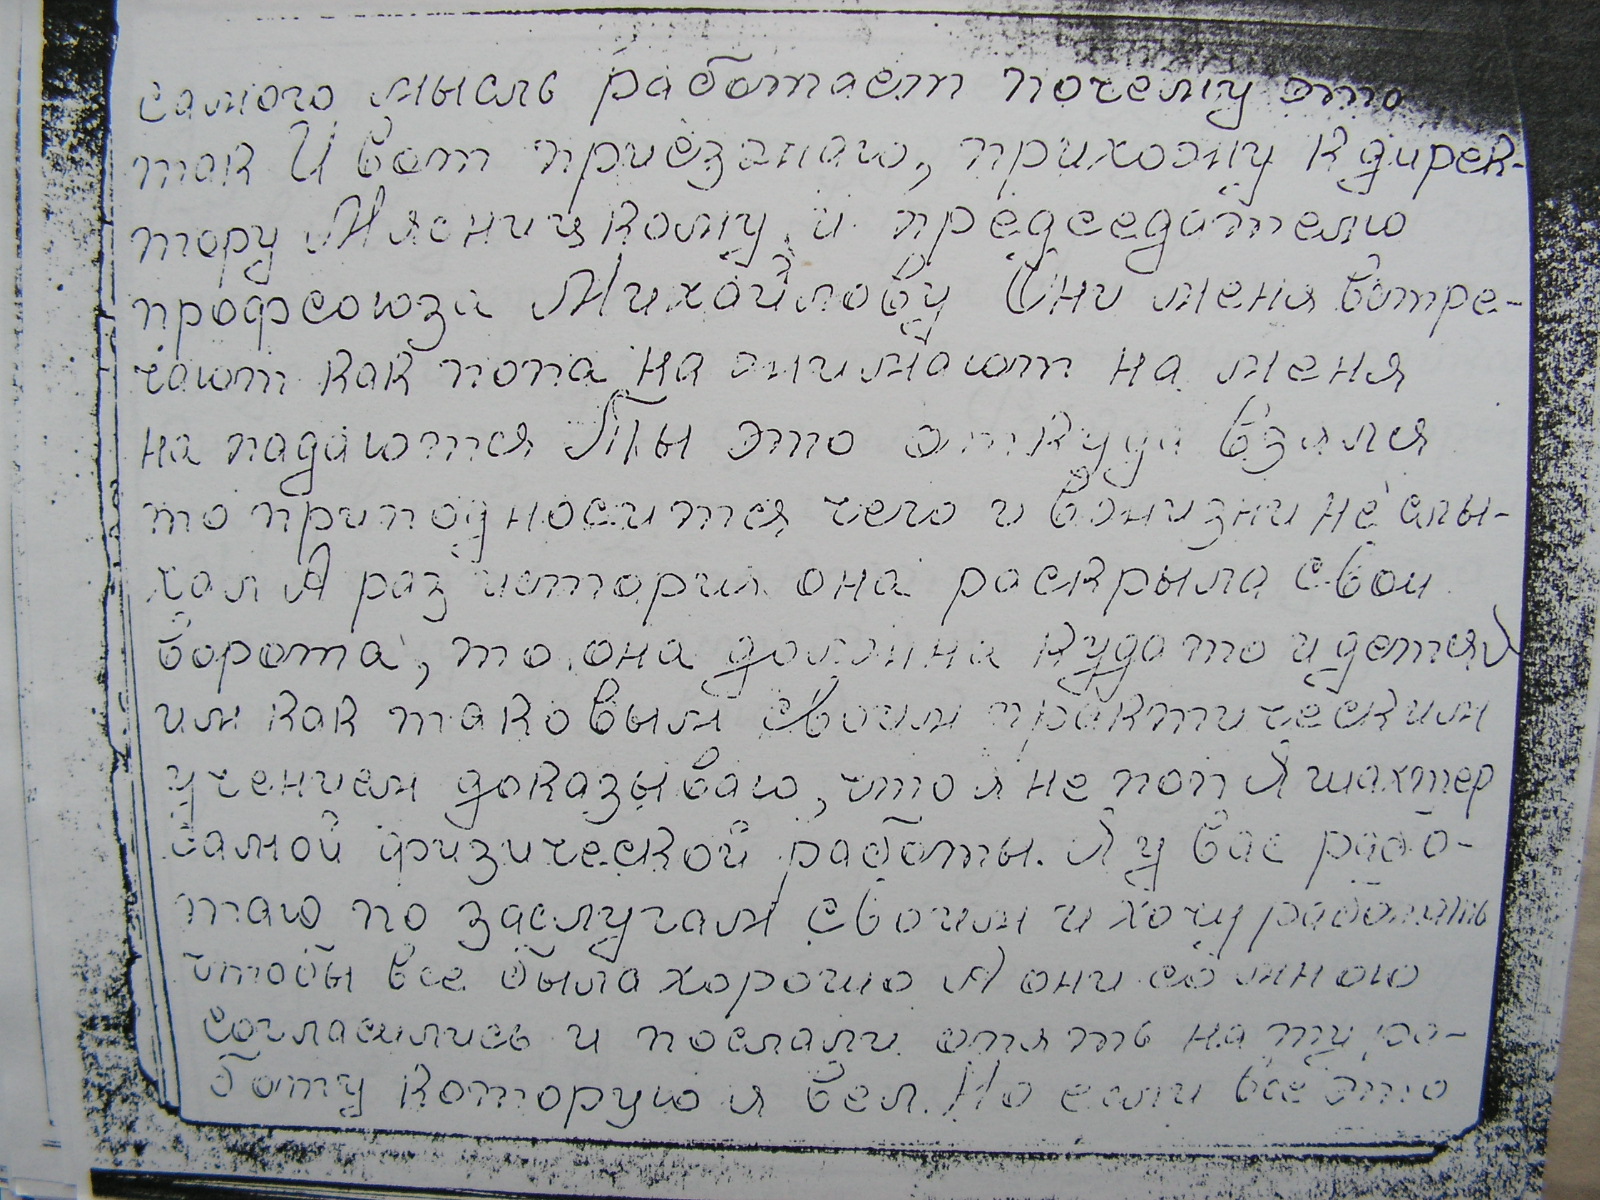 самого мысль работает почему это
так И вот приезжаю, прихожу к дирек-
тору Мясницкому и председателю
профсоюза Михайлову Они меня встре-
чают как попа нажимают на меня
нападаются Ты это откуда взялся
то приподносится чего и в жизни не слы-
хал А раз история она раскрыла свои
ворота, то она должна куда то и детя Я
им как таковым своим практическим
учением доказываю, что я не поп Я шахтер
самой физической работы. Я у вас рабо-
таю по заслугам своим и хочу работать
чтобы все была хорошо А они со мною
согласились и послали опять на ту ра-
боту которую я вел. Но если все это